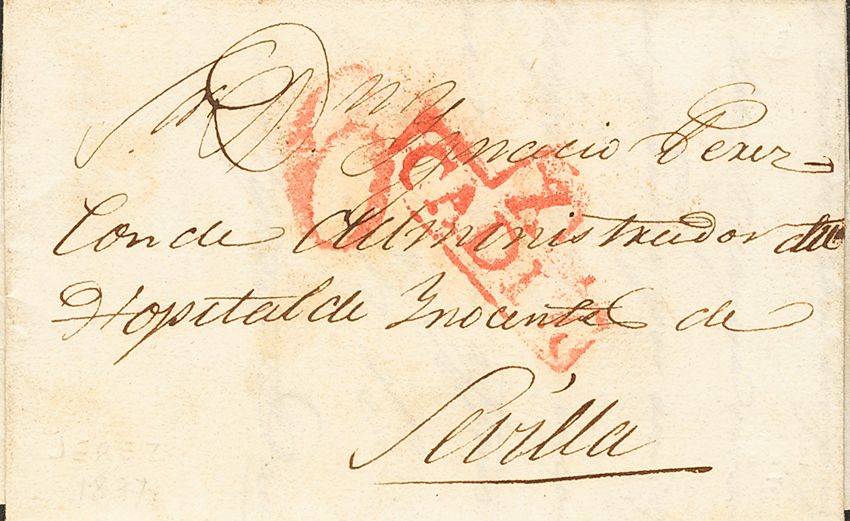 S.or D.n Ygnacio Perez
Conde Administrador del
Hopital de Ynocentes de
Sevilla
6
CADIZ
JEREZ
1837